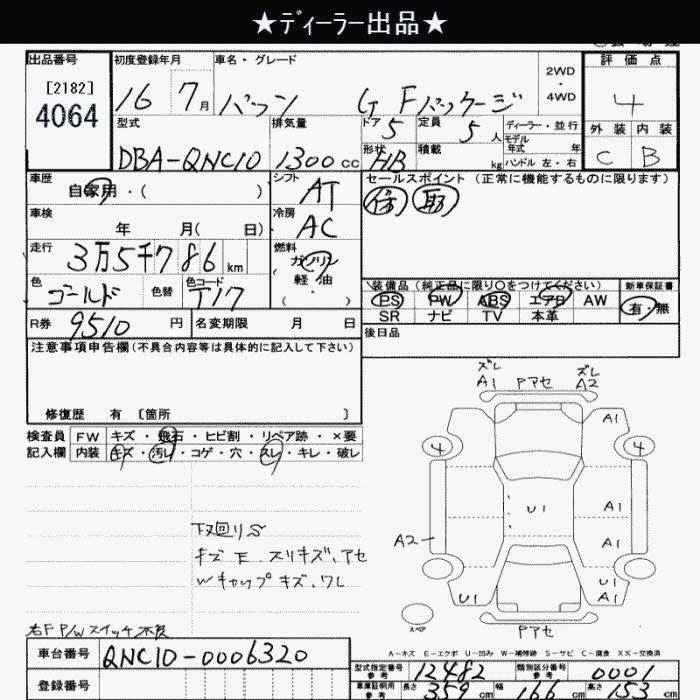 ★ディーラー出品★
出品番号 初度登録年月 車名・グレード 2WD ・ 4WD 評価点
[2182]
4064
16 7月 パッソ G Fパッケージ 4
型式 排気量 ドア 5 定員 5人 ディーラー・並行 外装 内装
DBA-QNC10 1300cc 形状 HB 積載 kg モデル年式 年 ハンドル 左・右 C B
車歴 シフト セールスポイント (正常に機能するものに限ります)
自家用・( ) AT
車検 冷房
年 月( 日) AC
走行 燃料
3万5千786km ガソリン
軽・油
色 色替 色コード ( ・ )
ゴールド T17
装備品(純正品に限り○をつけてください) 新車保証書
PS PW ABS エアB AW 有・無
SR ナビ TV 本革
R券 9510 円 名変期限 月 日
後日品
注意事項申告欄(不具合内容等は具体的に記入して下さい)
修復歴 有 〔箇所 〕
検査員 FW キズ・飛石・ヒビ割・リペア跡・×要
記入欄 内装 キズ・汚レ・コゲ・穴・スレ・キレ・破レ
ズレ ズレ
A1 Pアセ A2
A1
4 4
U1 A1
A2 A1
U1 U1
A1
スペア
Pアセ
下廻りS
キズ E、スリキズ、アセ
Wキャップキズ、ワレ
右F P/Wスイッチ不良
A－キズ E－エクボ U－凹み W－補修跡 S－サビ C－腐食 XX－交換済
車台番号 QNC10-0006320
型式指定番号 参考 12482 類別区分番号 参考 0001
登録番号
車庫証明用 参考 長さ 359cm 幅 166cm 高さ 153cm